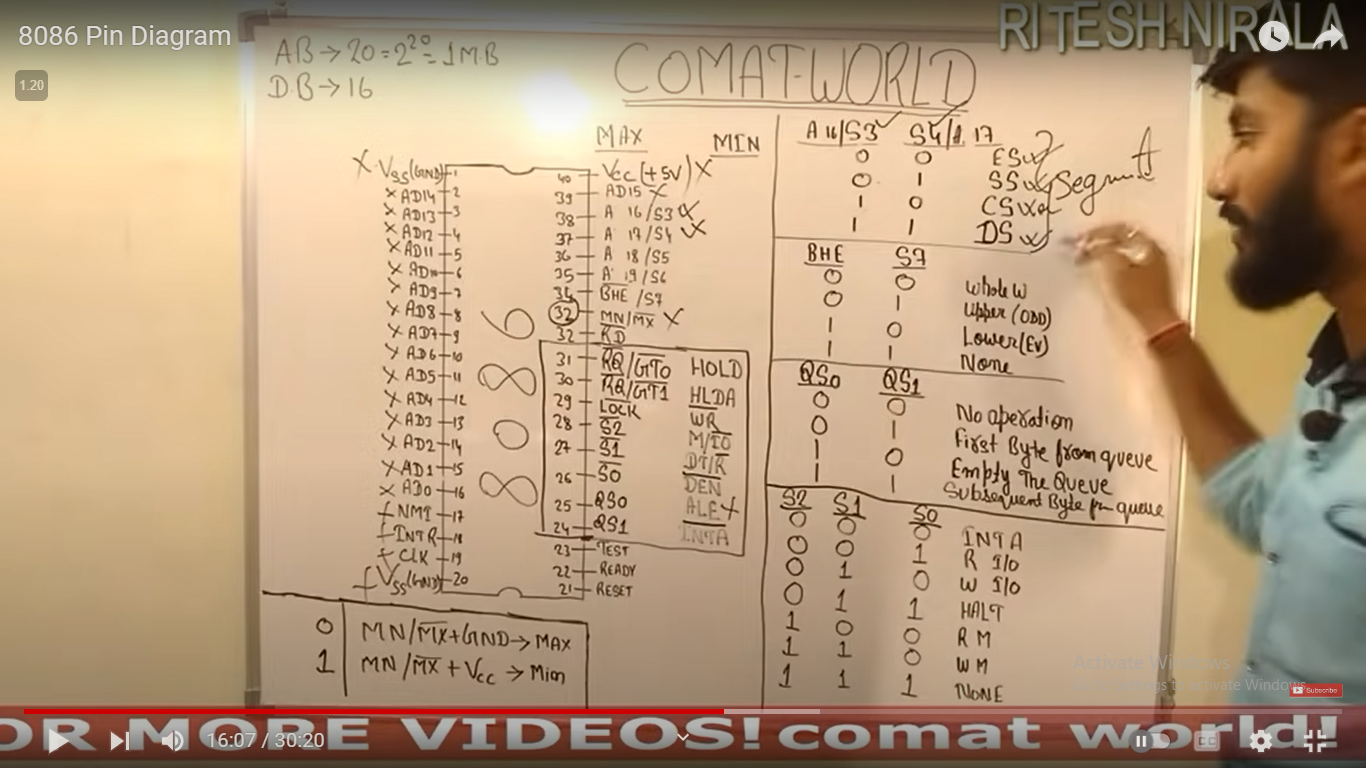 8086 Pin Diagram
RITESH NIRALA
1.20
AB→20=2²⁰=1M.B
D.B→16
COMAT-WORLD
MAX MIN
X Vss(GND) 1
X AD14 2
X AD13 3
X AD12 4
X AD11 5
X AD10 6
X AD9 7
X AD8 8
X AD7 9
X AD6 10
X AD5 11
X AD4 12
X AD3 13
X AD2 14
X AD1 15
X AD0 16
NMI 17
INTR 18
CLK 19
Vss(GND) 20
8086
40 Vcc(+5V) X
39 AD15 X
38 A 16/S3
37 A 17/S4
36 A 18/S5
35 A 19/S6
34 B̅H̅E̅/S7
32 MN/M̅X̅ X
32 R̅D̅
31 R̅Q̅/G̅T̅0 HOLD
30 R̅Q̅/G̅T̅1 HLDA
29 L̅O̅C̅K̅ W̅R̅
28 S̅2̅ M/I̅O̅
27 S̅1̅ DT/R̅
26 S̅0̅ D̅E̅N̅
25 QS0 ALE X
24 QS1 I̅N̅T̅A̅
23 TEST
22 READY
21 RESET
0 MN/M̅X̅+GND→MAX
1 MN/M̅X̅+Vcc→Min
A16/S3 S4/A 17
0 0 ES
0 1 SS
1 0 CS
1 1 DS
Segment
BHE S7
0 0 Whole W
0 1 Upper(ODD)
1 0 Lower(Ev)
1 1 None
QS0 QS1
0 0 No operation
0 1 First Byte from queue
1 0 Empty The Queue
1 1 Subsequent Byte queue
S2 S1 S0
0 0 0 INTA
0 0 1 R I/O
0 1 0 W I/O
0 1 1 HALT
1 0 0 R M
1 1 0 W M
1 1 1 NONE
Activate Windows
to activate Windows.
Subscribe
OR MORE VIDEOS! comat world!
16:07 / 30:20
CC